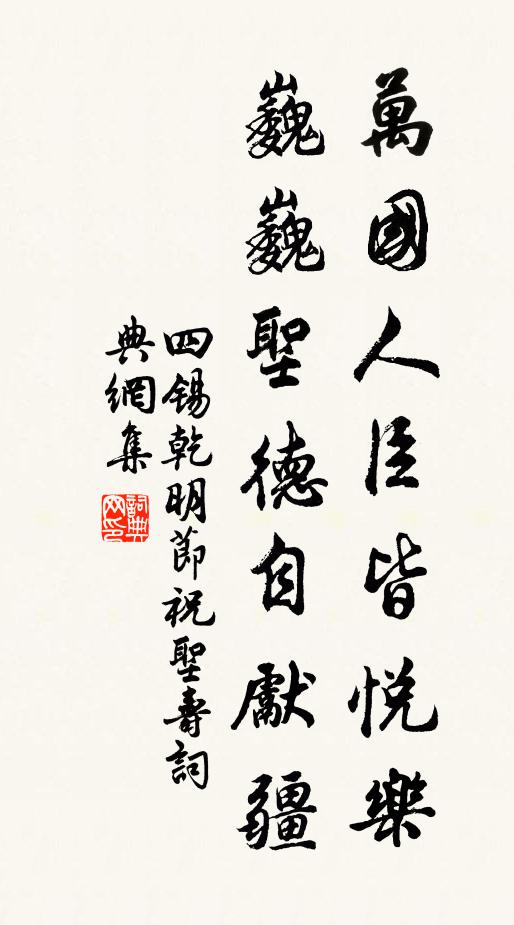 萬國人臣皆悅樂
巍巍聖德自獻疆
四錫乾明節祝聖壽詞
典網集
詞典網印